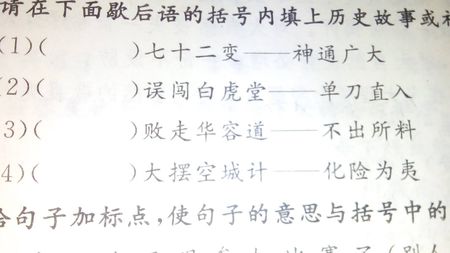 请在下面歇后语的括号内填上历史故事或
(1)( )七十二变——神通广大
(2)( )误闯白虎堂——单刀直入
3)( )败走华容道——不出所料
4)( )大摆空城计——化险为夷
给句子加标点,使句子的意思与括号中的